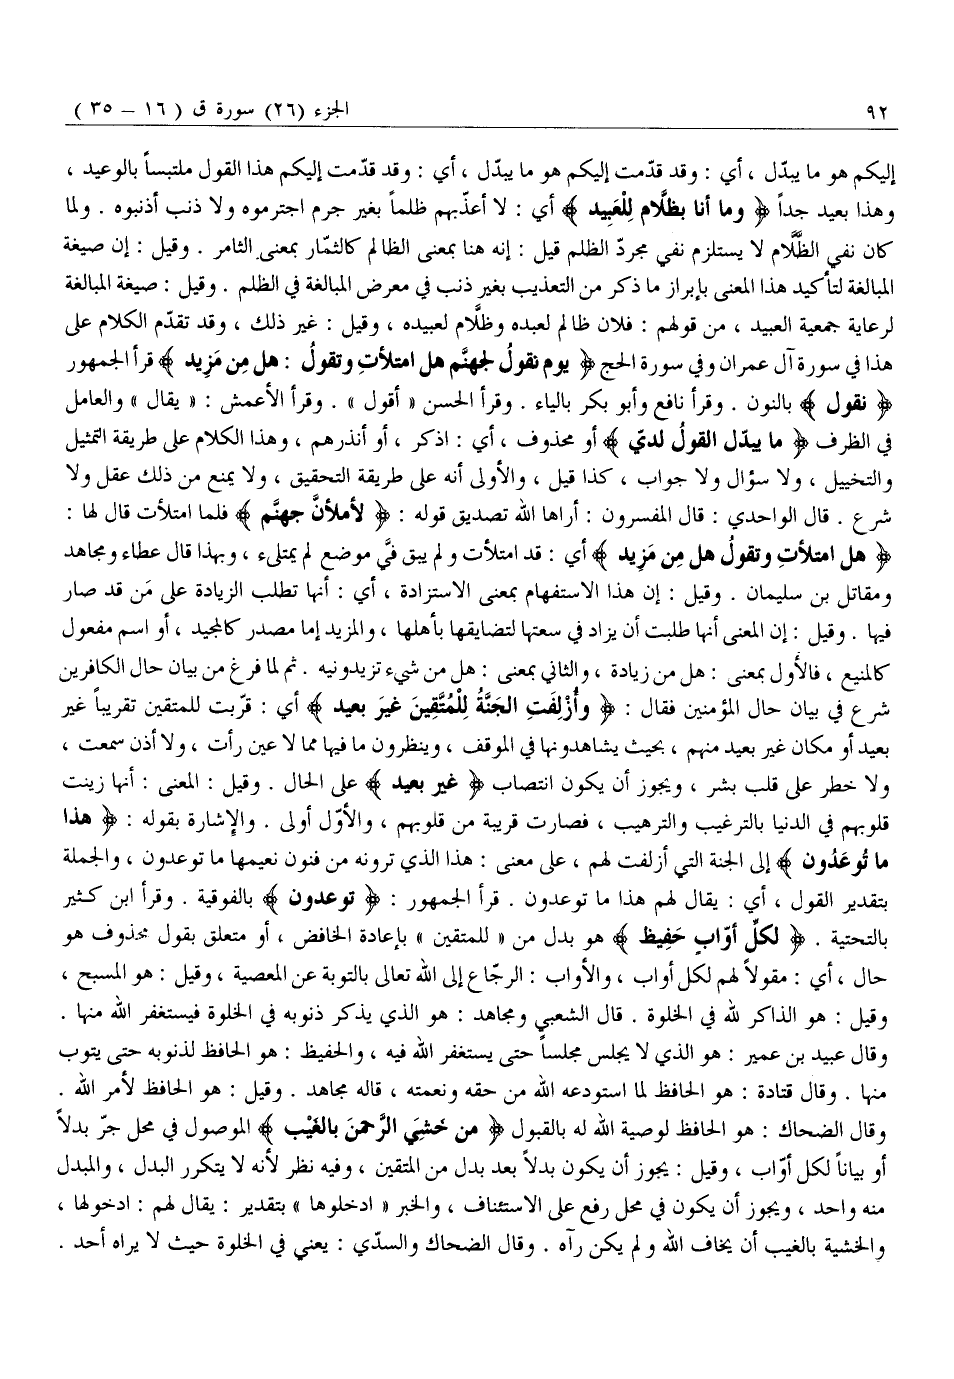 ٩٢ الجزء (٢٦) سورة ق ( ١٦ – ٣٥ )
إليكم هو ما يبدّل ، أي : وقد قدّمت إليكم هو ما يبدّل ، أي : وقد قدّمت إليكم هذا القول ملتبساً بالوعيد ،
وهذا بعيد جداً ﴿ وما أنا بظلَّام لِلْعَبِيد ﴾ أي : لا أعذّبهم ظلماً بغير جرم اجترموه ولا ذنب أذنبوه . ولما
كان نفي الظَّلَّام لا يستلزم نفي مجردّ الظلم قيل : إنه هنا بمعنى الظالم كالثمّار بمعنى الثامر . وقيل : إن صيغة
المبالغة لتأكيد هذا المعنى بإبراز ما ذكر من التعذيب بغير ذنب في معرض المبالغة في الظلم . وقيل : صيغة المبالغة
لرعاية جمعية العبيد ، من قولهم : فلان ظالم لعبده وظلَّام لعبيده ، وقيل : غير ذلك ، وقد تقدّم الكلام على
هذا في سورة آل عمران وفي سورة الحج ﴿ يوم نقولُ لجهنَّم هل امتلأتِ وتقولُ : هل مِن مَزِيد ﴾ قرأ الجمهور
﴿ نقول ﴾ بالنون . وقرأ نافع وأبو بكر بالياء . وقرأ الحسن « أقول » . وقرأ الأعمش : « يقال » والعامل
في الظرف ﴿ ما يبدّل القولُ لديّ ﴾ أو محذوف ، أي : اذكر ، أو أنذرهم ، وهذا الكلام على طريقة التمثيل
والتخييل ، ولا سؤال ولا جواب ، كذا قيل ، والأولى أنه على طريقة التحقيق ، ولا يمنع من ذلك عقل ولا
شرع . قال الواحدي : قال المفسرون : أراها الله تصديق قوله : ﴿ لأملأنَّ جهنَّم ﴾ فلما امتلأت قال لها :
﴿ هل امتلأتِ وتقولُ هل مِن مَزِيد ﴾ أي : قد امتلأت ولم يبق فيَّ موضع لم يمتلىء ، وبهذا قال عطاء ومجاهد
ومقاتل بن سليمان . وقيل : إن هذا الاستفهام بمعنى الاستزادة ، أي : أنها تطلب الزيادة على مَن قد صار
فيها . وقيل : إن المعنى أنها طلبت أن يزاد في سعتها لتضايقها بأهلها ، والمزيد إما مصدر كالمجيد ، أو اسم مفعول
كالمنيع ، فالأول بمعنى : هل من زيادة ، والثاني بمعنى : هل من شيء تزيدونيه . ثم لما فرغ من بيان حال الكافرين
شرع في بيان حال المؤمنين فقال : ﴿ وأُزْلِفَتِ الجَنَّةُ لِلْمُتَّقِينَ غيرَ بعيد ﴾ أي : قرّبت للمتقين تقريباً غير
بعيد أو مكان غير بعيد منهم ، بحيث يشاهدونها في الموقف ، وينظرون ما فيها مما لا عين رأت ، ولا أذن سمعت ،
ولا خطر على قلب بشر ، ويجوز أن يكون انتصاب ﴿ غير بعيد ﴾ على الحال . وقيل : المعنى : أنها زينت
قلوبهم في الدنيا بالترغيب والترهيب ، فصارت قريبة من قلوبهم ، والأوّل أولى . والإشارة بقوله : ﴿ هذا
ما تُوعَدُون ﴾ إلى الجنة التي أزلفت لهم ، على معنى : هذا الذي ترونه من فنون نعيمها ما توعدون ، والجملة
بتقدير القول ، أي : يقال لهم هذا ما توعدون . قرأ الجمهور : ﴿ توعدون ﴾ بالفوقية . وقرأ ابن كثير
بالتحتية . ﴿ لكلِّ أوّابٍ حَفِيظ ﴾ هو بدل من « للمتقين » بإعادة الخافض ، أو متعلق بقول محذوف هو
حال ، أي : مقولاً لهم لكل أواب ، والأواب : الرجّاع إلى الله تعالى بالتوبة عن المعصية ، وقيل : هو المسبح ،
وقيل : هو الذاكر لله في الخلوة . قال الشعبي ومجاهد : هو الذي يذكر ذنوبه في الخلوة فيستغفر الله منها .
وقال عبيد بن عمير : هو الذي لا يجلس مجلساً حتى يستغفر الله فيه ، والحفيظ : هو الحافظ لذنوبه حتى يتوب
منها . وقال قتادة : هو الحافظ لما استودعه الله من حقه ونعمته ، قاله مجاهد . وقيل : هو الحافظ لأمر الله .
وقال الضحاك : هو الحافظ لوصية الله له بالقبول ﴿ من خَشيَ الرَّحمنَ بالغَيْب ﴾ الموصول في محل جرّ بدلاً
أو بياناً لكل أوّاب ، وقيل : يجوز أن يكون بدلاً بعد بدل من المتقين ، وفيه نظر لأنه لا يتكرر البدل ، والمبدل
منه واحد ، ويجوز أن يكون في محل رفع على الاستئناف ، والخبر « ادخلوها » بتقدير : يقال لهم : ادخولها ،
والخشية بالغيب أن يخاف الله ولم يكن رآه . وقال الضحاك والسدّي : يعني في الخلوة حيث لا يراه أحد .